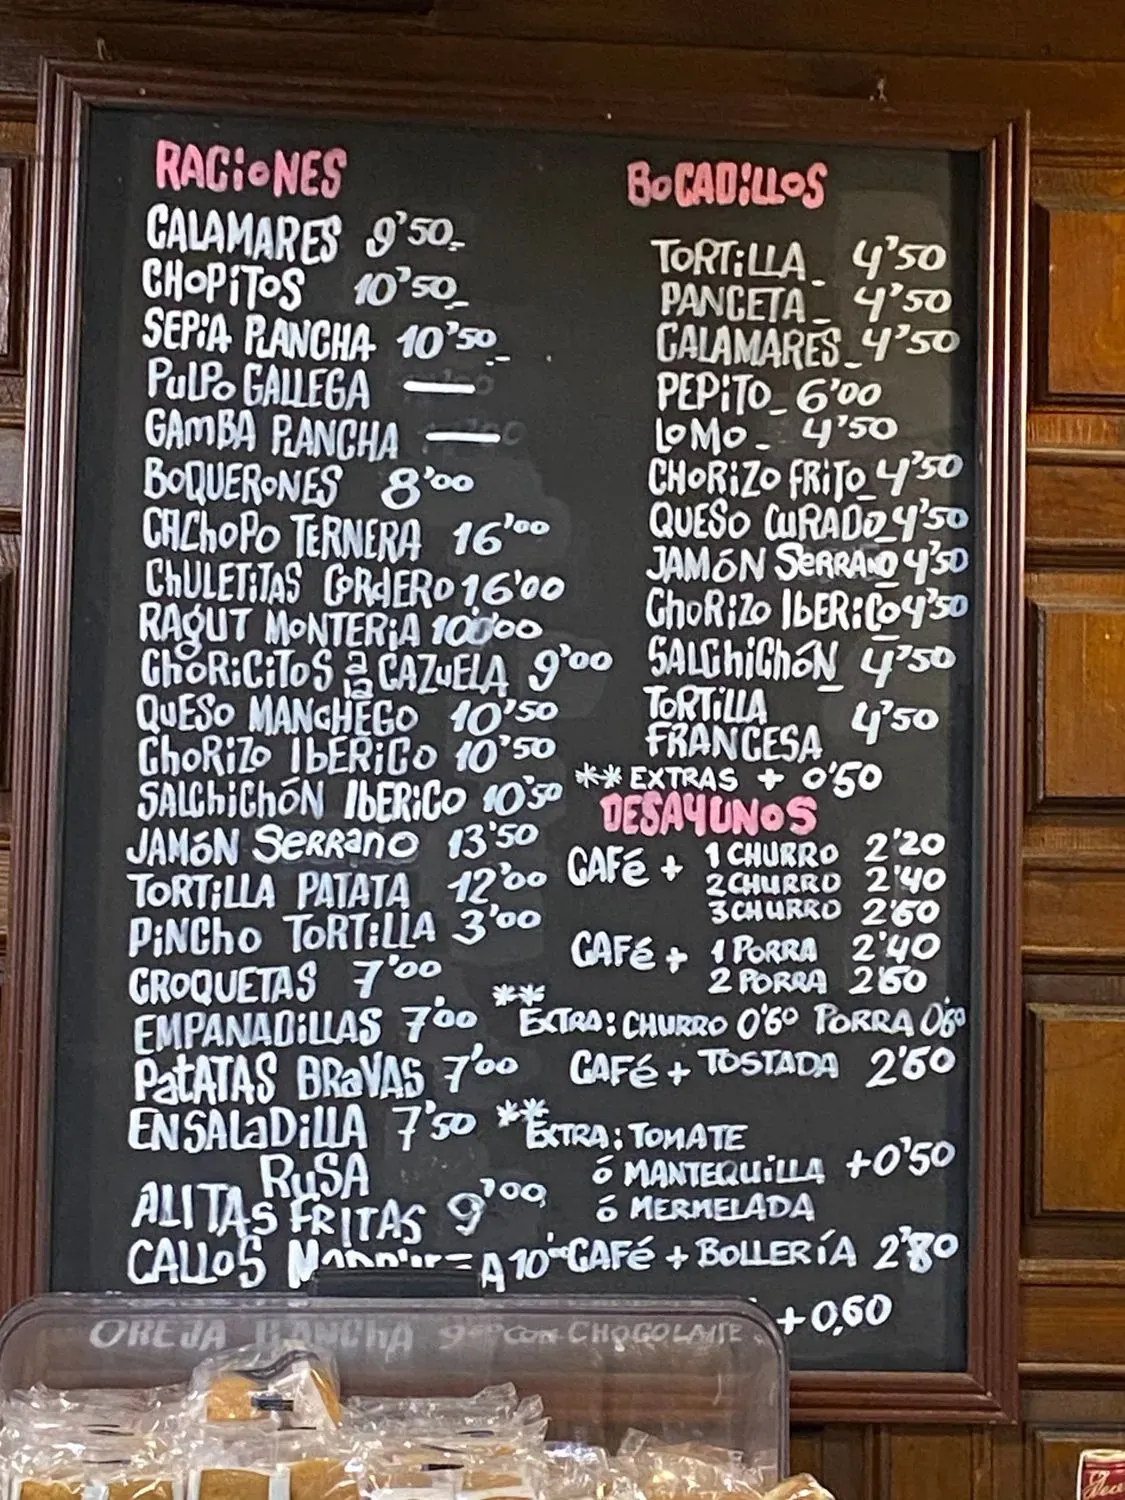 RACIONES
CALAMARES 9'50-
CHOPITOS 10'50-
SEPIA PLANCHA 10'50-
PULPO GALLEGA —
GAMBA PLANCHA —
BOQUERONES 8'00
CACHOPO TERNERA 16'00
CHULETITAS CORDERO 16'00
RAGUT MONTERIA 10'00
CHORICITOS a la CAZUELA 9'00
QUESO MANCHEGO 10'50
CHORIZO IBERICO 10'50
SALCHICHÓN IBERICO 10'50
JAMÓN SERRANO 13'50
TORTILLA PATATA 12'00
PINCHO TORTILLA 3'00
CROQUETAS 7'00
EMPANADILLAS 7'00
PATATAS BRAVAS 7'00
ENSALADILLA 7'50
RUSA
ALITAS FRITAS 9'00
CALLOS 10'
OREJA PLANCHA
BOCADILLOS
TORTILLA - 4'50
PANCETA - 4'50
CALAMARES - 4'50
PEPITO - 6'00
LOMO - 4'50
CHORIZO FRITO - 4'50
QUESO CURADO - 4'50
JAMÓN SERRANO - 4'50
CHORIZO IBERICO - 4'50
SALCHICHÓN - 4'50
TORTILLA
FRANCESA 4'50
** EXTRAS + 0'50
DESAYUNOS
CAFÉ + 1 CHURRO 2'20
2 CHURRO 2'40
3 CHURRO 2'60
CAFÉ + 1 PORRA 2'40
2 PORRA 2'60
** EXTRA: CHURRO 0'60 PORRA 0'60
CAFÉ + TOSTADA 2'60
** EXTRA: TOMATE
ó MANTEQUILLA +0'50
ó MERMELADA
CAFÉ + BOLLERÍA 2'80
+0,60
CON CHOCOLATE